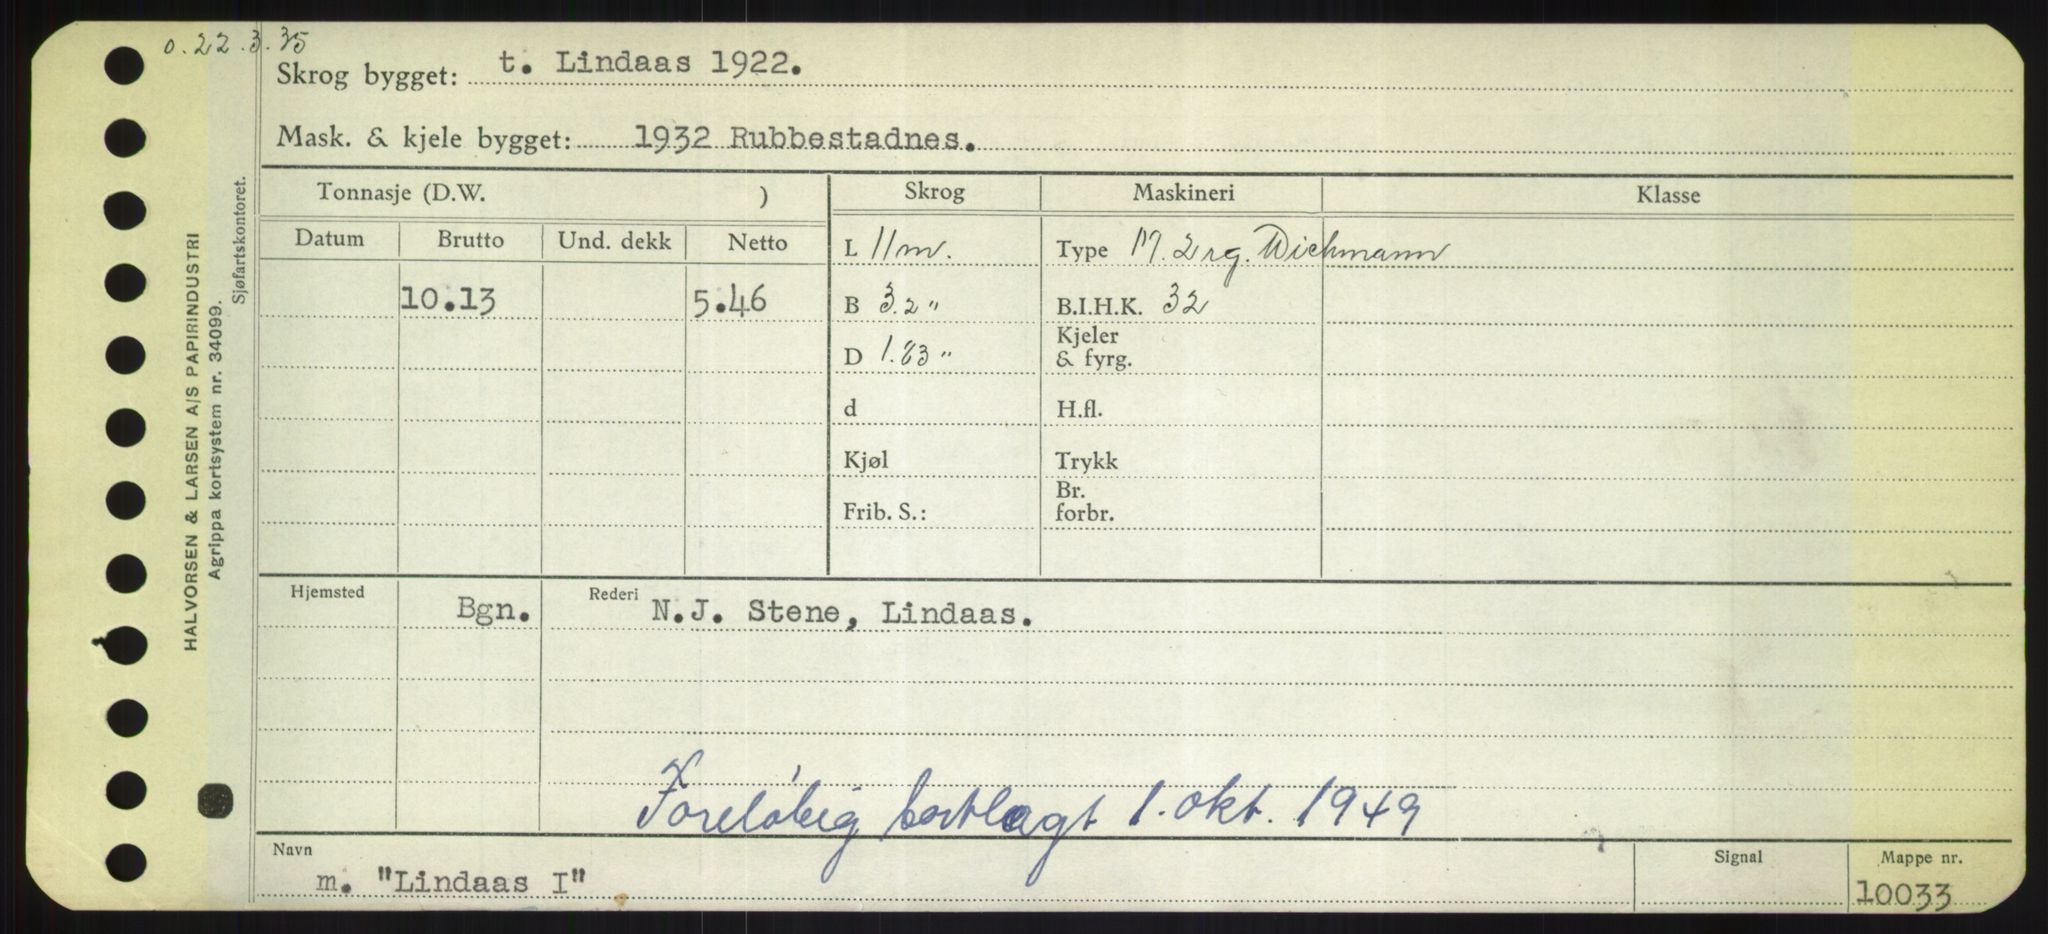 o. 22.3.35
Skrog bygget: t. Lindaas 1922.
Mask. & kjele bygget: 1932 Rubbestadnes.
Tonnasje (D.W. ) Skrog Maskineri Klasse
Datum Brutto Und. dekk Netto L 11m. Type M. 2 rg. Wichmann
10.13 5.46 B 3.2 " B.I.H.K. 32
D 1.83 " Kjeler & fyrg.
d H.fl.
Kjøl Trykk
Frib. S.: Br. forbr.
Hjemsted Bgn. Rederi N.J. Stene, Lindaas.
Foreløbig bortlagt 1. okt. 1949
Navn Signal Mappe nr.
m. "Lindaas I" 10033
HALVORSEN & LARSEN A/S PAPIRINDUSTRI
Agrippa kortsystem nr. 34099.
Sjøfartskontoret.